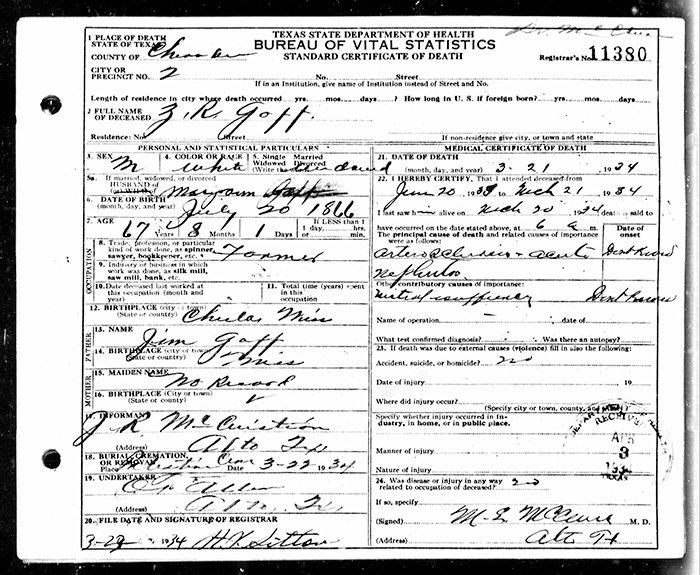 TEXAS STATE DEPARTMENT OF HEALTH
BUREAU OF VITAL STATISTICS
STANDARD CERTIFICATE OF DEATH
Registrar's No. 11380
1 PLACE OF DEATH
STATE OF TEXAS
COUNTY OF
CITY OR
PRECINCT NO. 2 No. Street
If in an Institution, give name of Institution instead of Street and No.
Length of residence in city where death occurred yrs. mos. days? How long in U. S. if foreign born? yrs. mos. days?
2 FULL NAME
OF DECEASED Z. K. Goff.
Residence: No. Street
If non-residence give city, or town and state
PERSONAL AND STATISTICAL PARTICULARS
3. SEX M 4. COLOR OR RACE White 5. Single Married
Widowed Divorced
(Write the
5a. If married, widowed, or divorced
HUSBAND of
6. DATE OF BIRTH
(month, day, and year) July 20 1866
7. AGE 67 Years 8 Months 1 Days If LESS than 1
1 day, hrs.
min.
OCCUPATION
8. Trade, profession, or particular
kind of work done, as spinner,
sawyer, bookkeeper, etc. Farmer
9. Industry or business in which
work was done, as silk mill,
saw mill, bank, etc.
10. Date deceased last worked at
this occupation (month and
year)
11. Total time (years) spent
in this
occupation
12. BIRTHPLACE (city or town)
(State or country) Miss
FATHER
13. NAME Jim Goff
14. BIRTHPLACE (city or town)
(State or country) Miss
MOTHER
15. MAIDEN NAME No Record
16. BIRTHPLACE (City or town)
(State or county)
17. INFORMANT J. K. McCuistion
(Address) Alto Tex
18. BURIAL, CREMATION,
OR REMOVAL
Place Cem Date 3-22 1934
19. UNDERTAKER Allen
(Address) Alto, Tex
20. FILE DATE AND SIGNATURE OF REGISTRAR
1934 H. K. Sitton
MEDICAL CERTIFICATE OF DEATH
21. DATE OF DEATH
(month, day, and year) 3-21, 1934
22. I HEREBY CERTIFY, That I attended deceased from
20 to Mch 21 1934
I last saw him alive on Mch 20 1934 death is said to
have occurred on the date stated above, at 6 a m.
The principal cause of death and related causes of importance
were as follows:
Date of
onset
acute
Other contributory causes of importance:
Name of operation date of
What test confirmed diagnosis? Was there an autopsy?
23. If death was due to external causes (violence) fill in also the following:
Accident, suicide, or homicide? no
Date of injury 19
Where did injury occur?
(Specify city or town, county, and
Specify whether injury occurred in in-
dustry, in home, or in public place.
Manner of injury
Nature of injury
RECEIVED
APR
3
1934
TEXAS
24. Was disease or injury in any way
related to occupation of deceased? no
If so, specify
(Signed) M. D.
(Address) Alto